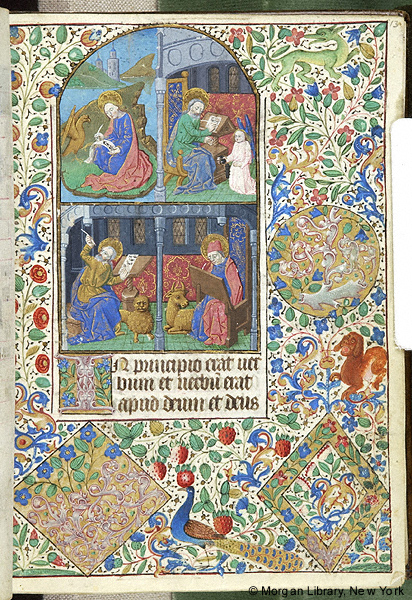 In principio erat uer
bum et uerbū erat
apud deum et deus
© Morgan Library, New York